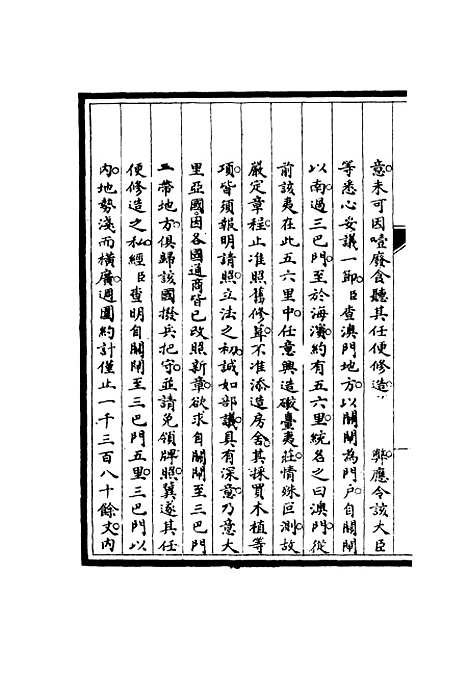 意未可因噎廢食聽其任便修造 弊應令該大臣
等悉心妥議一節臣查澳門地方以關閘為門戶自關閘
以南過三巴門至於海濱約有五六里統名之曰澳門從
前該夷在此五六里中任意興造礮臺夷莊情殊叵測故
嚴定章程止准照舊修葺不准添造房舍其採買木植等
項皆須報明請照立法之初誠如部議具有深意乃意大
里亞國因各國通商皆已改照新章欲求自關閘至三巴門
一帶地方俱歸該國撥兵把守並請免領牌照冀遂其任
便修造之私經臣查明自關閘至三巴門五里三巴門以
內地勢淺而橫廣週圍約計僅止一千三百八十餘丈內